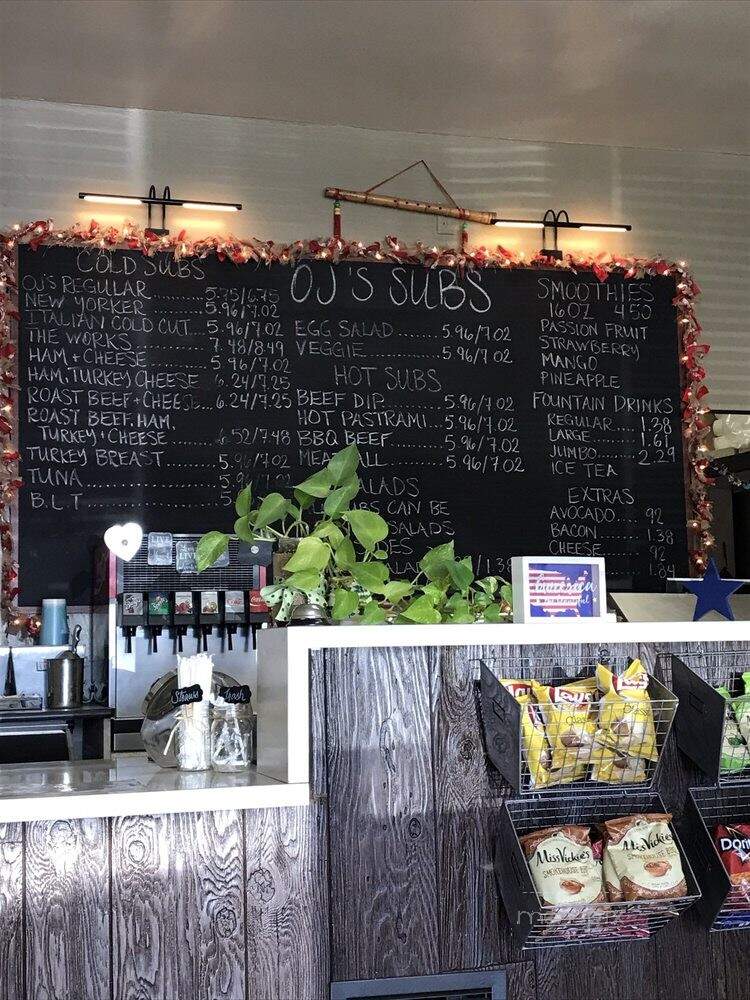 COLD SUBS
OJ'S REGULAR........ 5.75/6.75
NEW YORKER........ 5.96/7.02
ITALIAN COLD CUT... 5.96/7.02
THE WORKS........ 7.48/8.49
HAM + CHEESE........ 5.96/7.02
HAM, TURKEY CHEESE 6.24/7.25
ROAST BEEF + CHEESE... 6.24/7.25
ROAST BEEF, HAM,
TURKEY + CHEESE........ 6.52/7.48
TURKEY BREAST........ 5.96/7.02
TUNA........
B.L.T........
OJ'S SUBS
EGG SALAD........ 5.96/7.02
VEGGIE........ 5.96/7.02
HOT SUBS
BEEF DIP........ 5.96/7.02
HOT PASTRAMI... 5.96/7.02
BBQ BEEF........ 5.96/7.02
5.96/7.02
SALADS
CAN BE
SALADS
/1.38
SMOOTHIES
16 OZ 4.50
PASSION FRUIT
STRAWBERRY
MANGO
PINEAPPLE
FOUNTAIN DRINKS
REGULAR.... 1.38
LARGE.... 1.61
JUMBO.... 2.29
ICE TEA
EXTRAS
AVOCADO.... .92
BACON.... 1.38
CHEESE.... .92
LIVE
Straws
Trash
america
the beautiful
Lay's
Miss Vickie's
SMOKEHOUSE BBQ
Miss Vickie's
SMOKEHOUSE BBQ
Dori